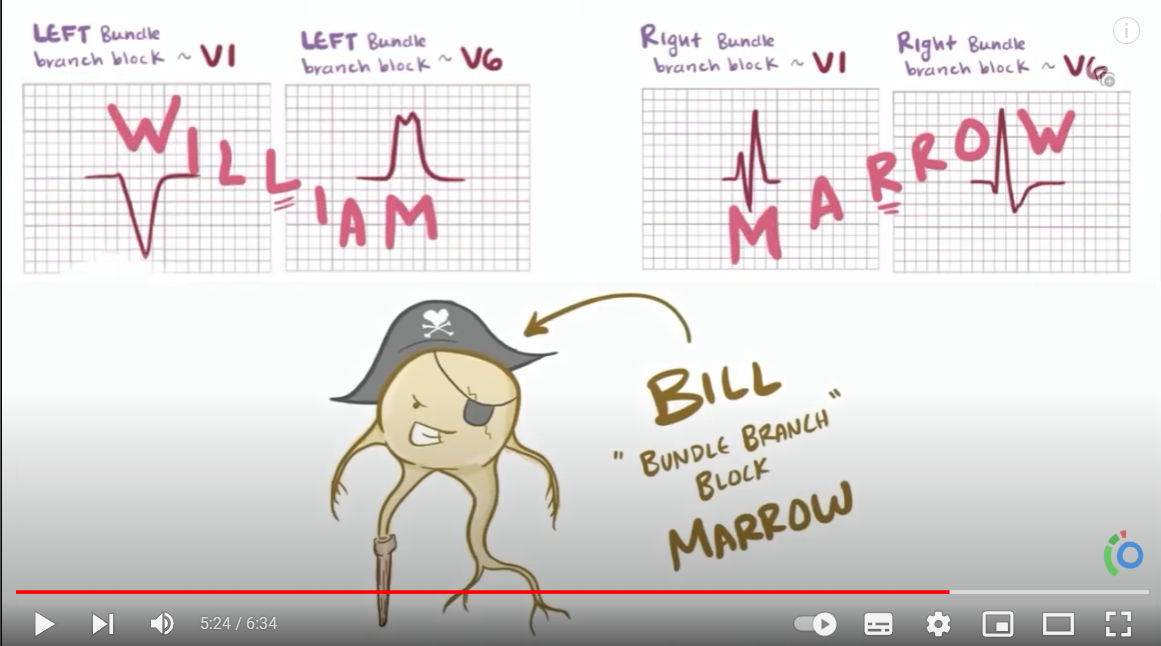 LEFT Bundle
branch block ~ V1
LEFT Bundle
branch block ~ V6
Right Bundle
branch block ~ V1
Right Bundle
branch block ~ V6
WILLIAM
MARROW
BILL
"BUNDLE BRANCH"
BLOCK
MARROW
5:24 / 6:34